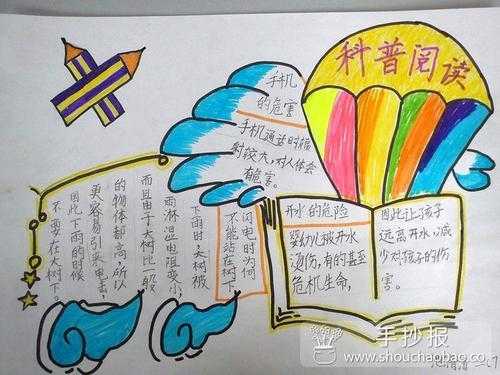 科普阅读
手机
的危害
手机通话时辐
射较大,对人体会
有危害。
闪电时为何
不能站在树下
下雨时大树被
雨淋湿电阻变小,
而且由于大树比一般
的物体都高,所以
更容易引来电击,
因此下雨的时候
不要在大树下。
开水的危险
婴幼儿被开水
烫伤,有的甚至
危机生命,
因此让孩子
远离开水,减
少对孩子的伤
害。
手抄报
www.shouchaobao.co